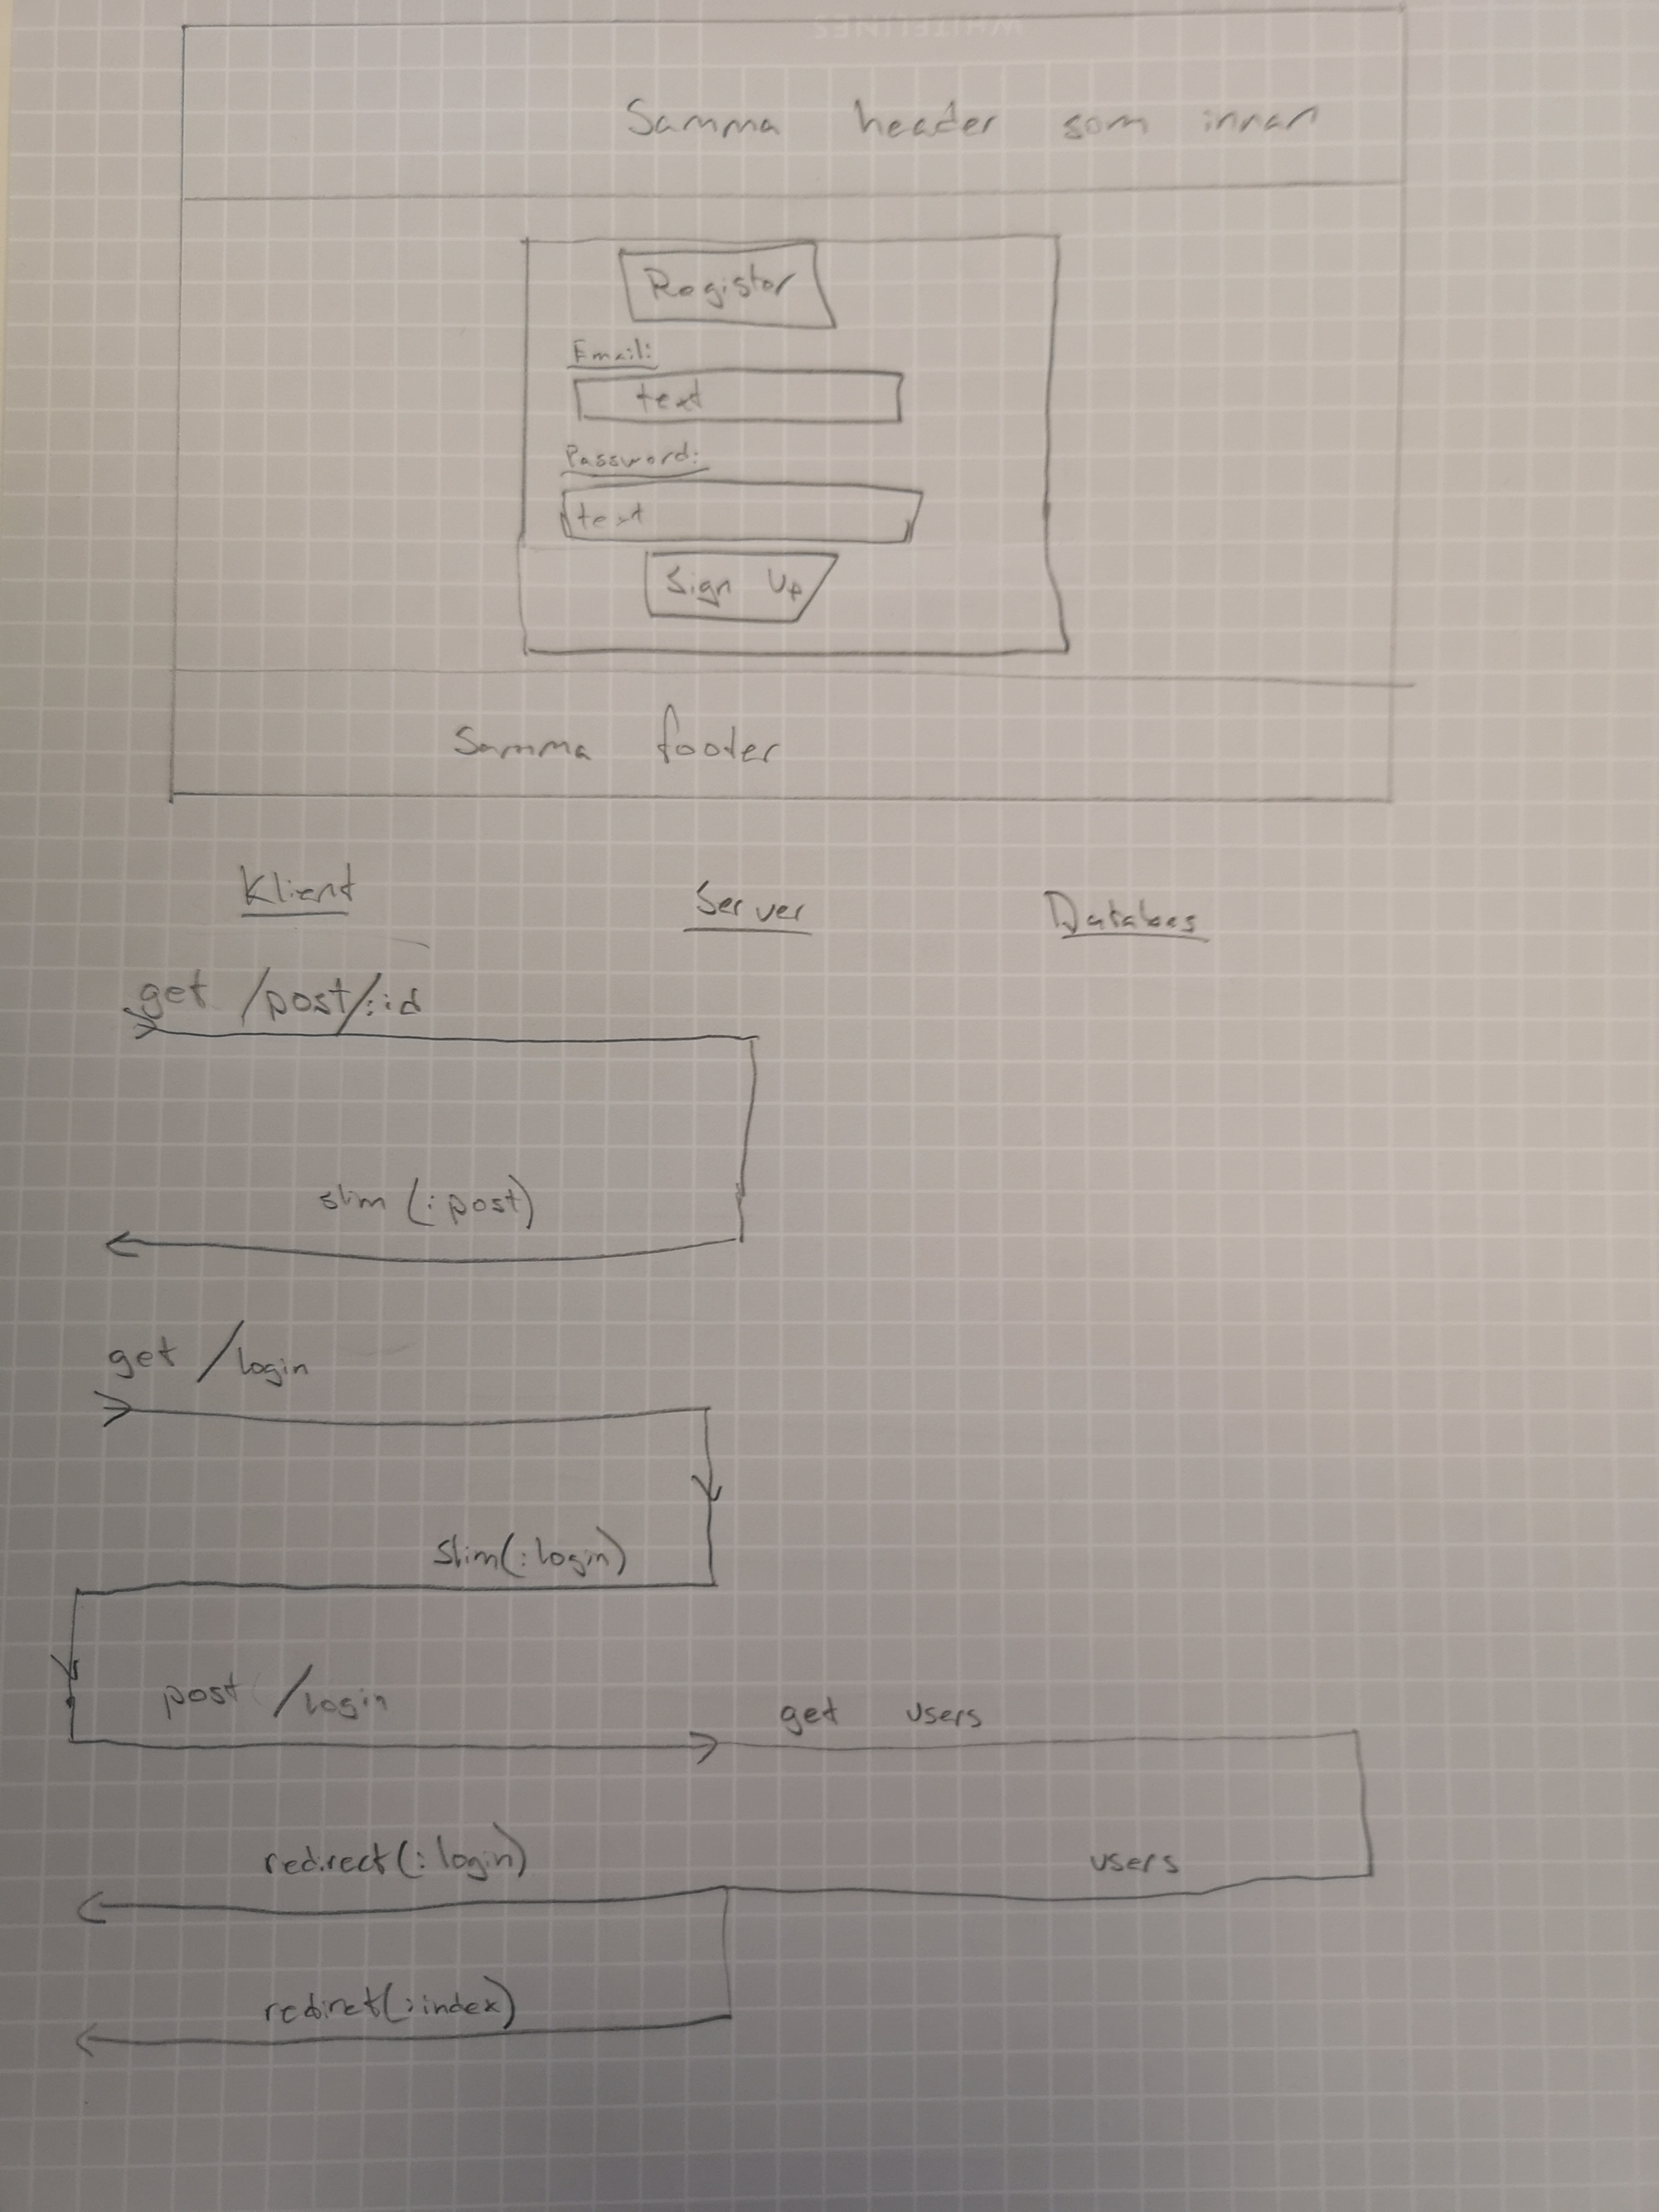 WHITELINES
Samma header som innan
Register
Email:
text
Password:
text
Sign Up
Samma footer
Klient Server Databas
get /post/:id
slim (:post)
get /login
Slim(:login)
post /login get users
redirect(:login) users
redirect(:index)